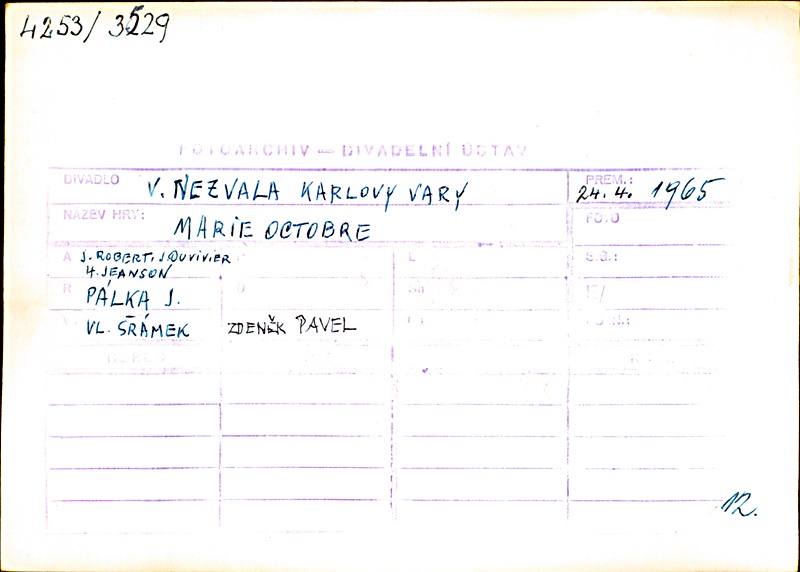 4253/ 3529
FOTOARCHIV — DIVADELNÍ ÚSTAV
DIVADLO V. NEZVALA KARLOVY VARY PREM.: 24. 4. 1965
NÁZEV HRY: MARIE OCTOBRE FOTO
A J. ROBERT, J. DUVIVIER L S.G.:
H. JEANSON
R PÁLKA J.
VL. ŠRÁMEK ZDENĚK PAVEL
12.